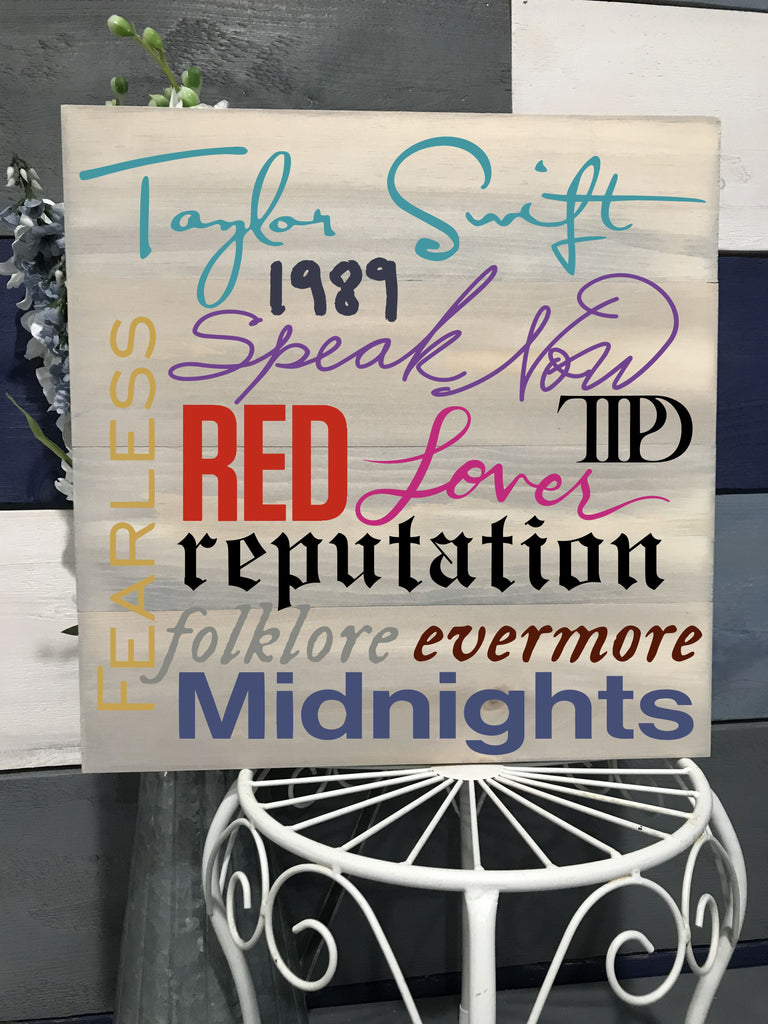 Taylor Swift
1989
Speak Now
TTPD
FEARLESS
RED Lover
reputation
folklore evermore
Midnights